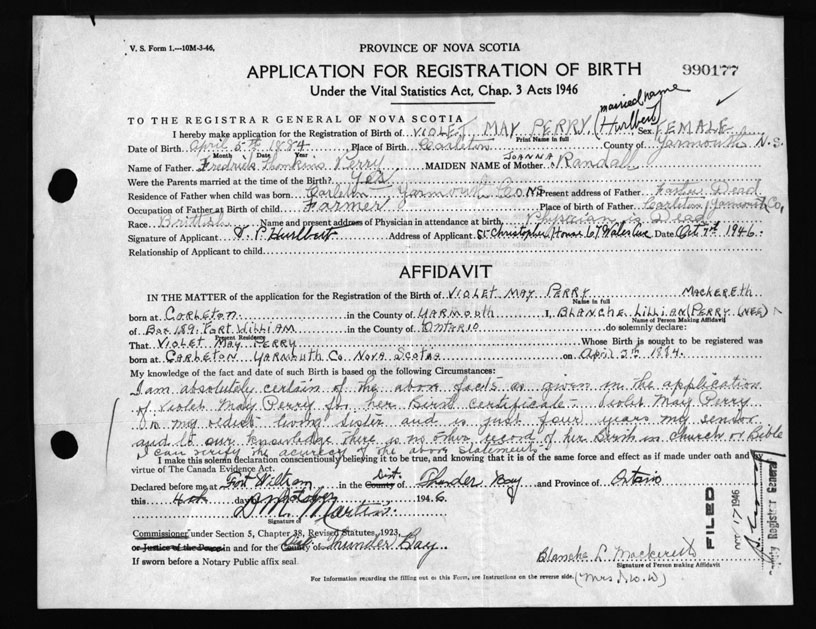 V. S. Form 1.—10M-3-46,
PROVINCE OF NOVA SCOTIA
APPLICATION FOR REGISTRATION OF BIRTH
990177
Under the Vital Statistics Act, Chap. 3 Acts 1946
married name
TO THE REGISTRAR GENERAL OF NOVA SCOTIA
I hereby make application for the Registration of Birth of VIOLET MAY PERRY (Hurlbert) Sex FEMALE
Print Name in full
Date of Birth April 5th 1884 Place of Birth Carleton County of Yarmouth N.S.
Month Date Year
Name of Father Fredrick Perry MAIDEN NAME of Mother JOANNA Randall
Were the Parents married at the time of the Birth? Yes
Residence of Father when child was born Carleton Yarmouth Co N S Present address of Father Dead
Occupation of Father at Birth of child Farmer Place of birth of Father Carleton Yarmouth Co,
Race Name and present address of Physician in attendance at birth, Physician is Dead
Signature of Applicant P Hurlbert Address of Applicant St Christopher House 67 Wales Ave Date Oct 7th 1946.
Relationship of Applicant to child
AFFIDAVIT
IN THE MATTER of the application for the Registration of the Birth of VIOLET MAY PERRY MACKERETH
Name in full
born at CARLETON in the County of YARMOUTH I, BLANCHE LILLIAN (PERRY (NEE)
Name of Person Making Affidavit
of Box 189, FORT WILLIAM in the County of ONTARIO do solemnly declare:
Present Residence
That VIOLET MAY PERRY Whose Birth is sought to be registered was
born at CARLETON YARMOUTH Co NOVA SCOTIA on April 5th 1884.
My knowledge of the fact and date of such Birth is based on the following Circumstances:
I am absolutely certain of the above facts as given on the application
of Violet May Perry for her Birth certificate - Violet May Perry
is my oldest living sister and is just four years my senior
and to our knowledge there is no other record of her birth in Church or Bible
I can verify the accuracy of the above statements.
I make this solemn declaration conscientiously believing it to be true, and knowing that it is of the same force and effect as if made under oath and by
virtue of The Canada Evidence Act.
Declared before me at Fort William in the County Dist. of Thunder Bay and Province of Ontario
this 4th day October 1946
D.M. Martin.
Signature of
Commissioner under Section 5, Chapter 38, Revised Statutes, 1923,
or Justice of the Peace in and for the County of Thunder Bay
If sworn before a Notary Public affix seal
Blanche L Mackereth
Signature of Person making Affidavit
(Mrs J. W. W)
For Information regarding the filling out of this Form, see Instructions on the reverse side.
FILED
OCT 17 1946
Deputy Registrar General